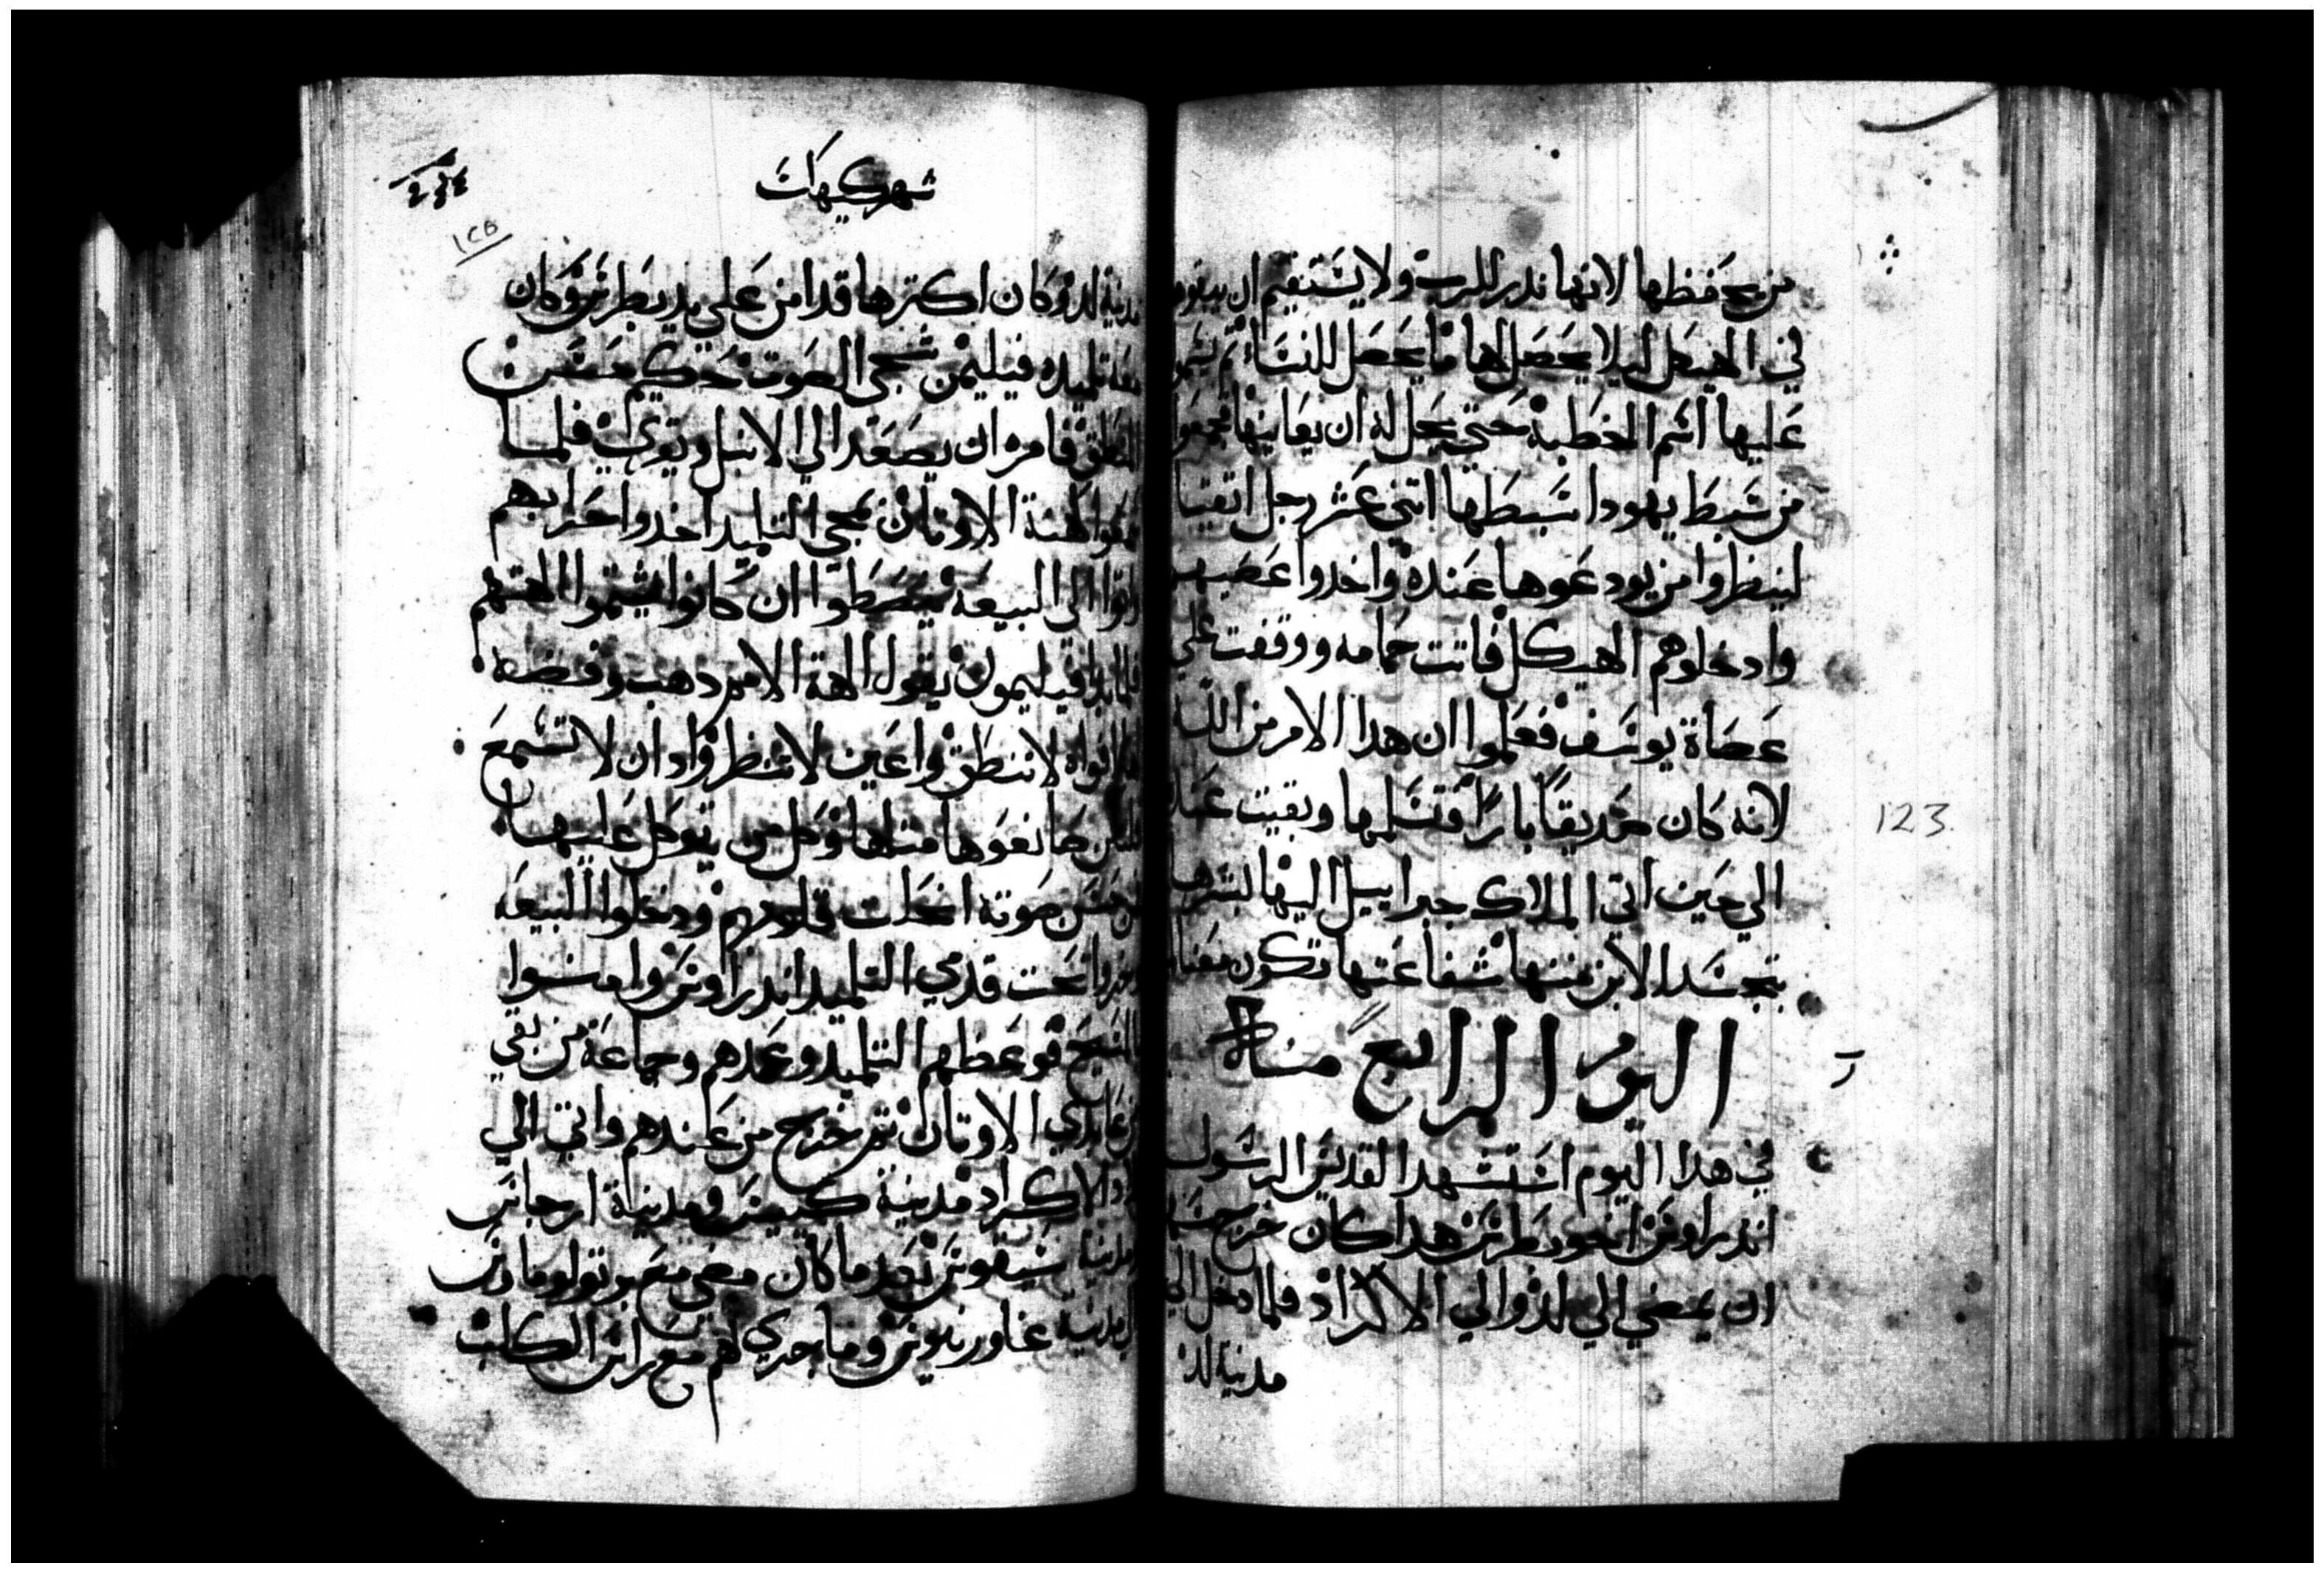 من يحفظها لانها ندر للرب ولا يستقيم ان
في الهيكل ليلا يحصل لها ما يحصل للنساء
عليها اسم الخطبة حتي يحل له ان يعاينها فجمعوا
من سبط يهودا سبطها اتني عشر رجل اتقيا
لينظروا من يودعوها عنده واخدوا عصيهم
وادخلوهم الهيكل فاتت حمامه ووقفت علي
عصاة يوسف فعلموا ان هدا الامر من الله
لانه كان صديقا بارا فتسلمها وبقيت عنده
الي حين اتي الملاك جبراييل اليها بشرها
بتجسد الابن منها شفاعتها تكون معنا
اليوم الرابع منه
في هدا اليوم استشهد القديس الرسول
اندراوس اخو بطرس هدا كان خرج سهمه
ان يمضي الي لد والي الاكراد فلما دخل الي
مدينة لد
123
شهر كيهك
١٢٥
مدينة لد وكان اكترها قد امن علي يد بطرس وكان
معه تلميده فيليمن شجي الصوت حكيم حسن
المنطق فامره ان يصعد الي الانبل ويقرا فلما
سمعوا كهنة الاوتان بمجي التلميد اخدوا حرابهم
واتوا الي البيعه ان كانوا يشتموا الهتهم
فيليمون يقول الهة الامم دهب وفضه
لا تنطق واعين لا تنظر وادان لا تسمع
صانعوها متلها وكل من يتوكل عليها
من حسن صوته انحلت قلوبهم ودخلوا البيعه
وخروا تحت قدمي التلميد اندراوس وامنوا
بالمسيح فوعظهم التلميد وعمدهم وجماعة من بقي
من عابدي الاوتان تم خرج من عندهم واتي الي
الاكراد مدينة ومدينة ارجانس
ومدينة سيفوس بعد ما كان مضي مع برتولوماوس
الي مدينة غاورينوس وما جري لهم مع راس الكلب